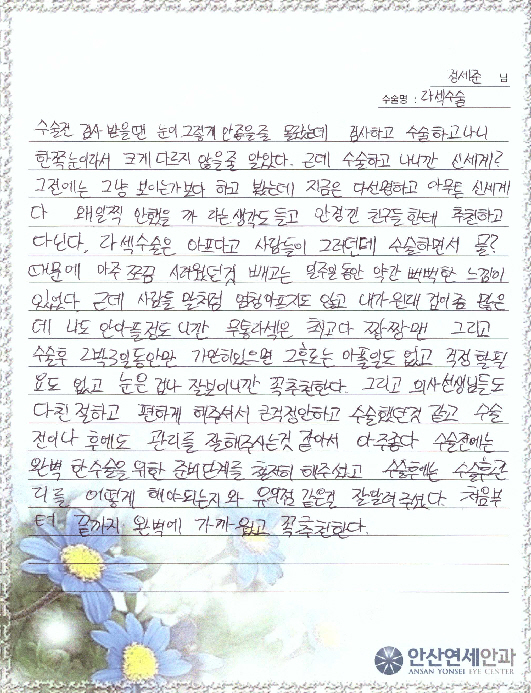 정세준 님
수술명 : 라섹수술
수술전 검사 받을땐 눈이 그렇게 안좋을줄 몰랐는데 검사하고 수술하고나니
한쪽눈이라서 크게 다르지 않을줄 알았다. 근데 수술하고 나니깐 신세계?
그전에는 그냥 보이는가보다 하고 봤는데 지금은 다선명하고 아무튼 신세계
다 왜일찍 안했을까 라는생각도 들고 안경낀 친구들한테 추천하고
다닌다. 라섹수술은 아프다고 사람들이 그러던데 수술하면서 물?
때문에 아주 쪼끔 시려웠던것 빼고는 일주일동안 약간 뻑뻑한 느낌이
있었다. 근데 사람들 말처럼 엄청아프지도 않고 내가원래 겁이좀 많은
데 나도 안아플정도니깐 무통라섹은 최고다 짱짱맨 그리고
수술후 2박3일동안만 가만히있으면 그후로는 아플일도 없고 걱정할필
요도 없고 눈은 겁나 잘보이니깐 꼭추천한다. 그리고 의사선생님들도
다친절하고 편하게 해주셔서 큰걱정안하고 수술했던것 같고 수술
전이나 후에도 관리를 잘해주시는것 같아서 아주좋다 수술전에는
완벽한수술을 위한 준비단계를 철저히 해주셨고 수술후에는 수술후관
리를 어떻게 해야되는지와 유의점 같은걸 잘알려주셨다. 처음부
터 끝까지 완벽에 가까웠고 꼭추천한다.
안산연세안과
ANSAN YONSEI EYE CENTER